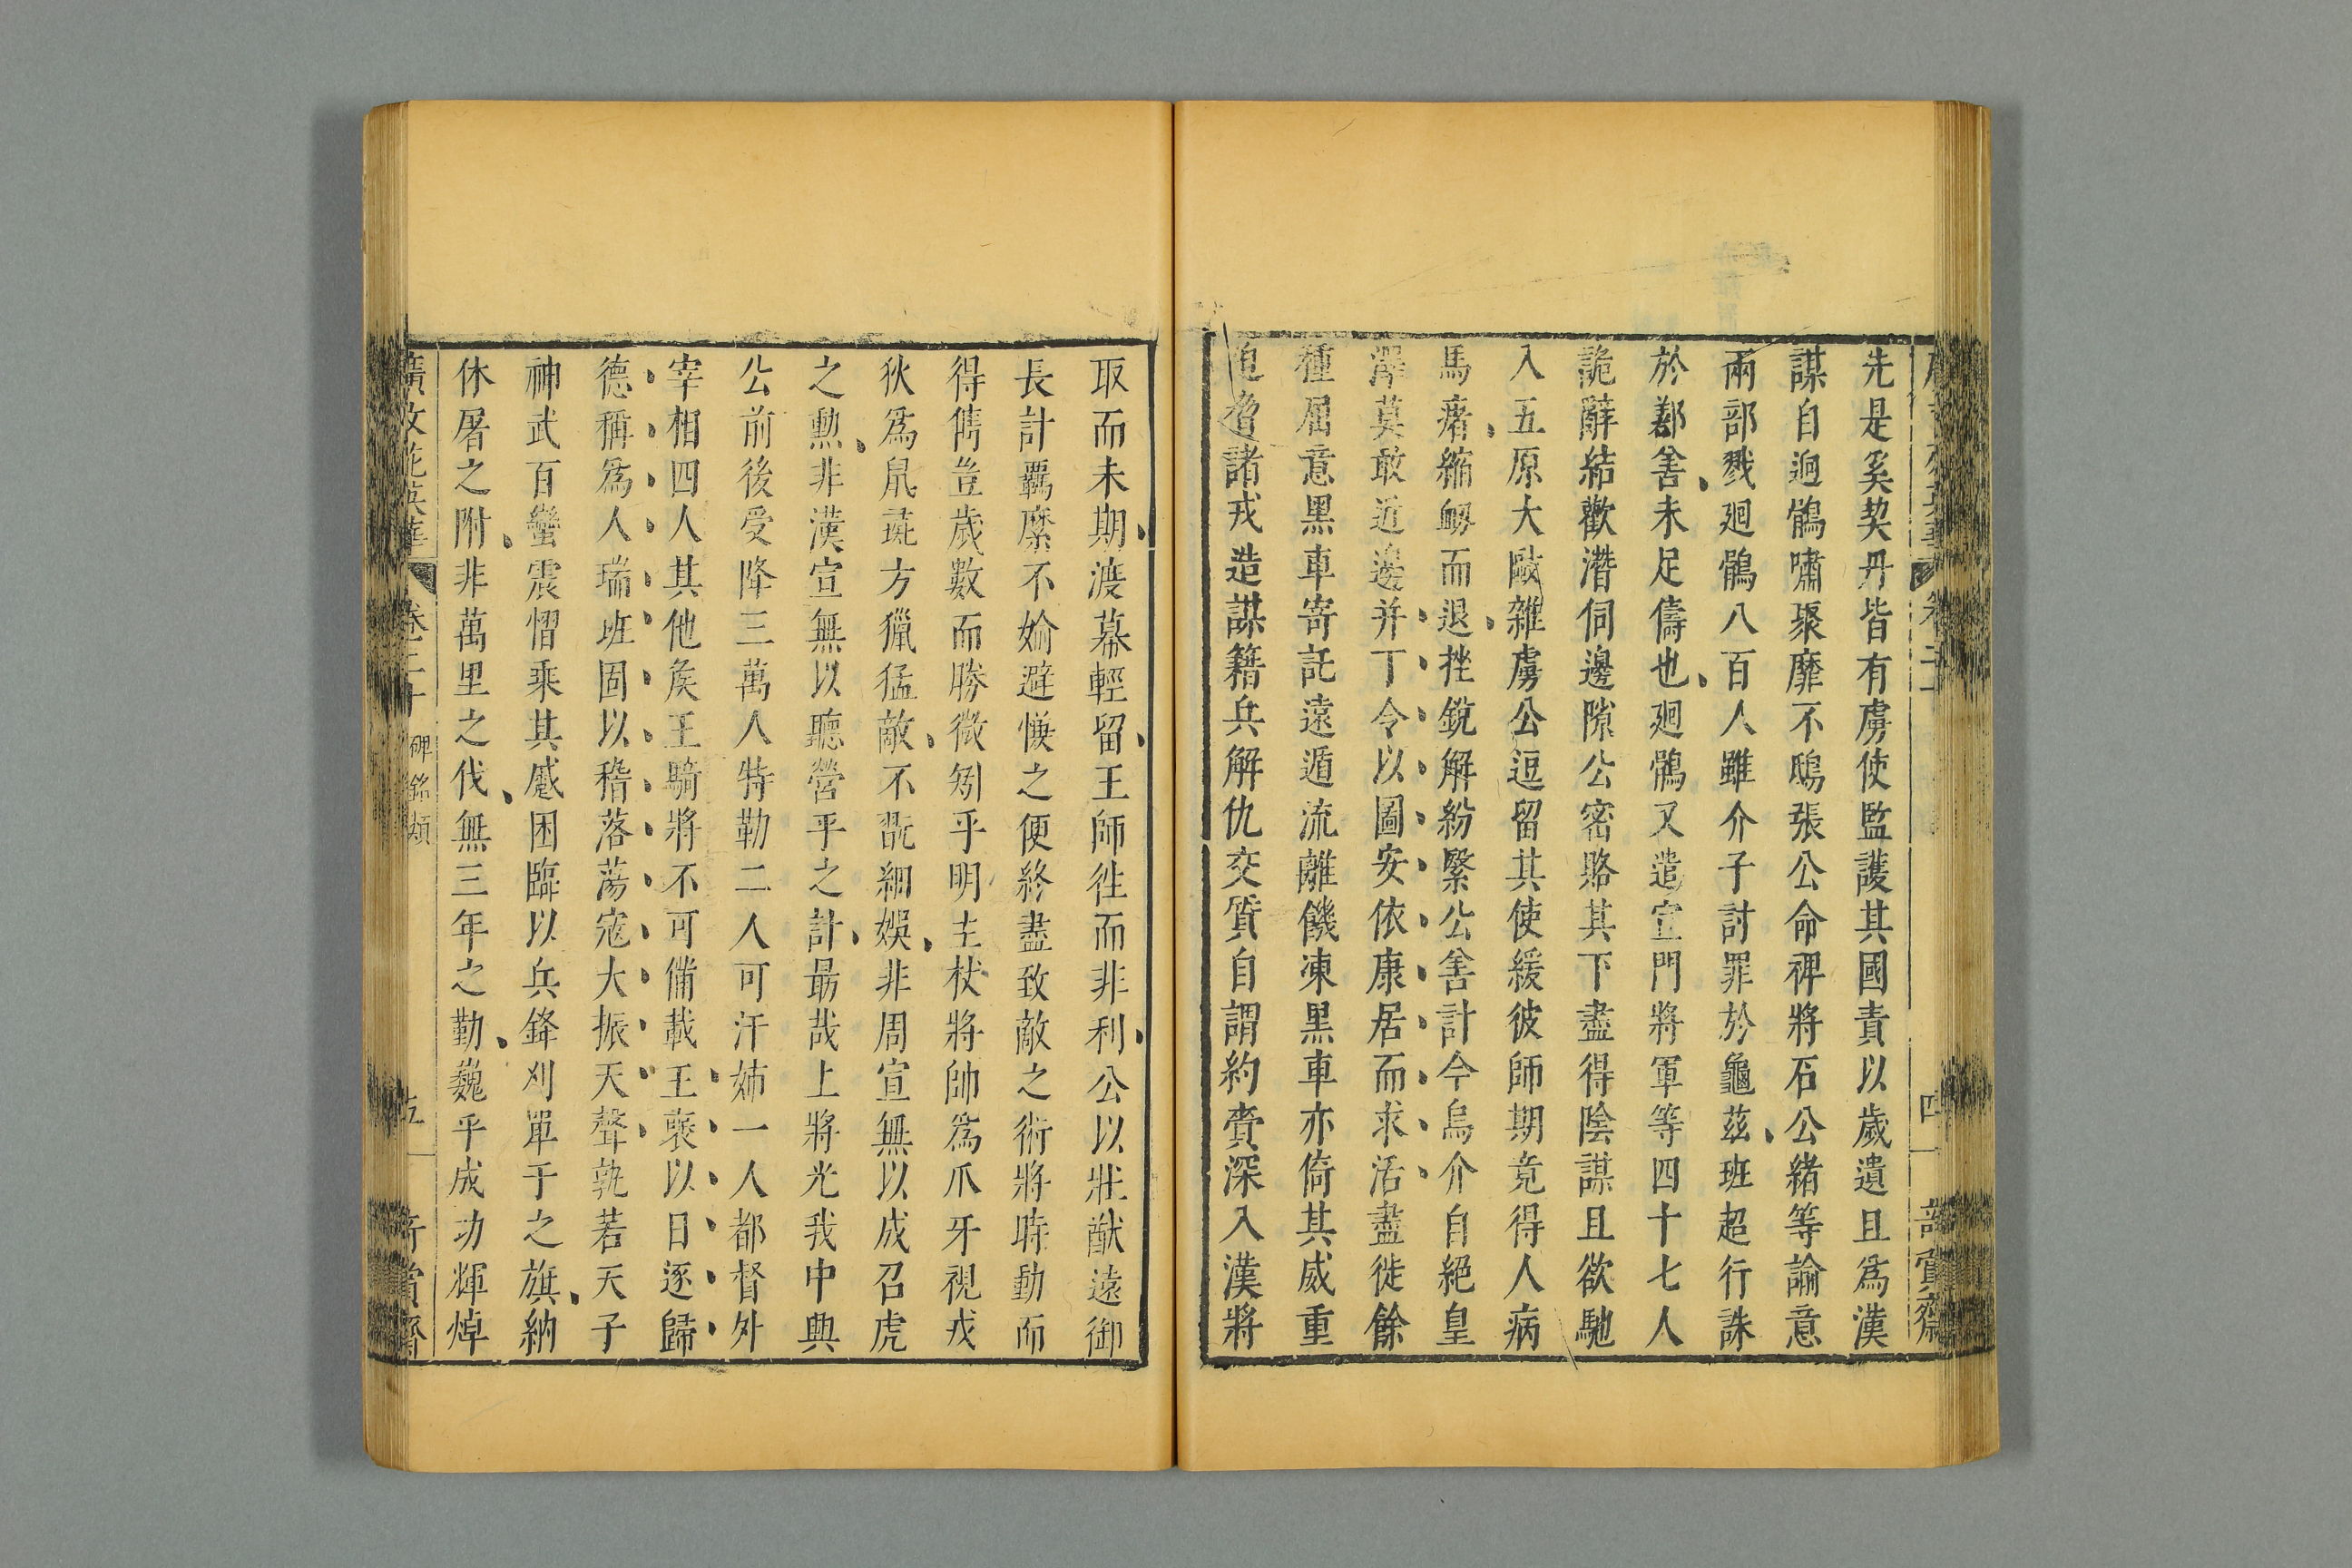 先是奚契丹皆有虜使監護其國責以歲遺且爲漢
謀自迥鶻嘯聚靡不鴟張公命裨將石公緒等諭意
兩部戮廻鶻八百人雖介子討罪於龜茲班超行誅
於鄯善未足儔也廻鶻又遣宣門將軍等四十七人
詭辭結歡潛伺邊隙公密賂其下盡得陰謀且欲馳
入五原大敺雜虜公逗留其使緩彼師期竟得人病
馬瘏縮衂而退挫銳解紛繄公善計今烏介自絕皇
澤莫敢近邊并丁令以圖安依康居而求活盡徙餘
種屈意黑車寄託遠遁流離饑凍黑車亦倚其威重
迫脅諸戎造謀籍兵解仇交質自謂約賫深入漢將
取而未期渡幕輕留王師徃而非利公以壯猷遠御
長計羈縻不婾避愞之便終盡致敵之術將時動而
得儁豈歲數而勝微矧乎明主杖將帥爲爪牙視戎
狄爲鼠蝱方獵猛敵不翫細娛非周宣無以成召虎
之勲非漢宣無以聽營平之計最哉上將光我中興
公前後受降三萬人特勒二人可汗姊一人都督外
宰相四人其他矦王騎將不可備載王褒以日逐歸
德稱爲人瑞班固以稽落蕩寇大振天聲孰若天子
神武百蠻震慴乘其蹙困臨以兵鋒刈單于之旗納
休屠之附非萬里之伐無三年之勤巍乎成功輝焯
廣文苑英華 卷二十 碑銘類 五 奇賞齋